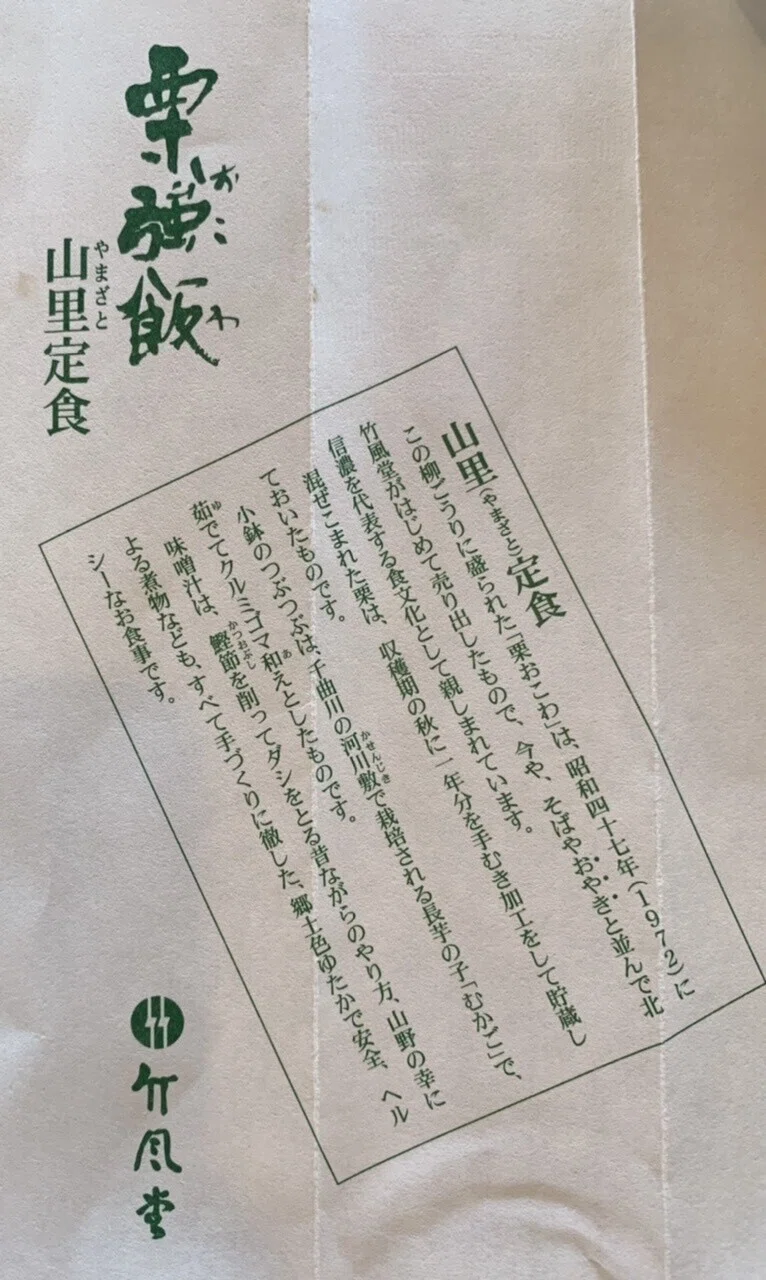 栗強飯
おこわ
山里定食
やまざと
山里(やまざと)定食
この柳ごうりに盛られた「栗おこわ」は、昭和四十七年(1972)に
竹風堂がはじめて売り出したもので、今や、そばやおやきと並んで北
信濃を代表する食文化として親しまれています。
混ぜこまれた栗は、収穫期の秋に一年分を手むき加工をして貯蔵し
ておいたものです。
小鉢のつぶつぶは、千曲川の河川敷で栽培される長芋の子「むかご」で、
かせんじき
茹でてクルミゴマ和えとしたものです。
ゆ
あ
味噌汁は、鰹節を削ってダシをとる昔ながらのやり方、山野の幸に
かつおぶし
よる煮物なども、すべて手づくりに徹した、郷土色ゆたかで安全、ヘル
シーなお食事です。
竹風堂